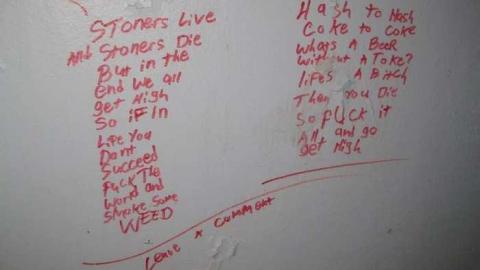 SToners Live
And Stoners Die
But in the
end We all
get High
So iF In
Life You
Dont
Succeed
Fuck The
World and
Smoke Some
WEED
Hash to Hash
Coke to coke
Whats A Beer
Without A Toke?
lifes A Bitch
Then You Die
So FUCK it
All and go
get High
Leave A COMMENT